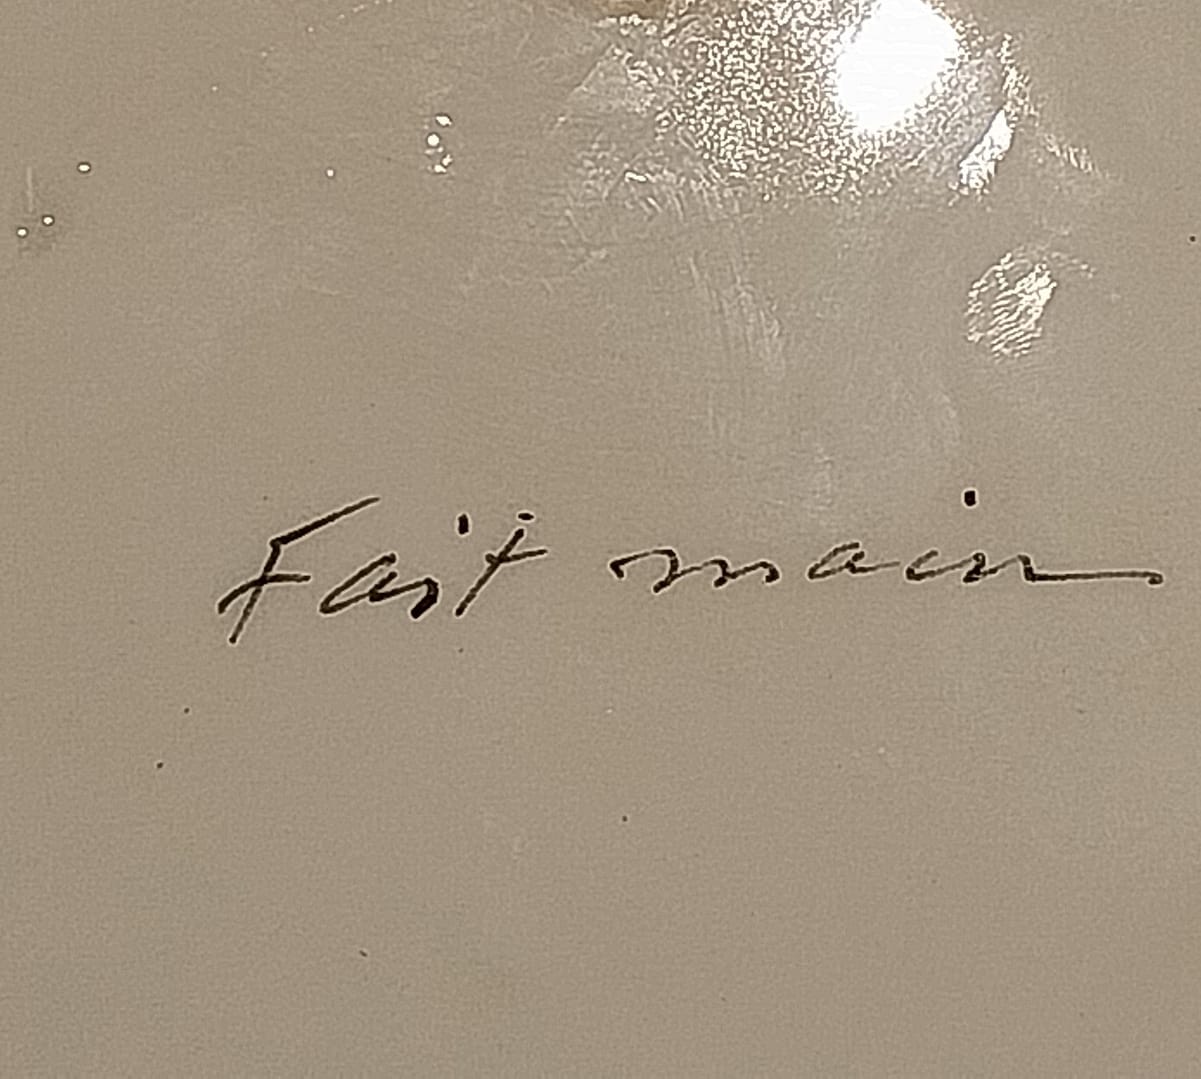 Fait main